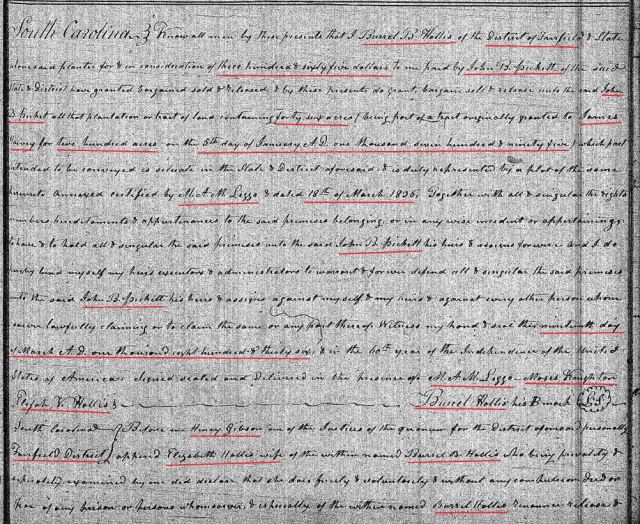 South Carolina } Know all men by these presents that I Burrel B. Hollis of the District of Fairfield & State
aforesaid planter for & in consideration of three hundred & sixty five dollars to me paid by John B. Pickett of the said
State & District have granted bargained sold & released & by these presents do grant, bargain sell & release unto the said John
B. Picket all that plantation or tract of land containing forty six acres (being part of a tract originally granted to James
for two hundred acres on the 5th day of January A.D. one thousand seven hundred & ninety five) which part
intended to be conveyed is situate in the State & District aforesaid & is duly represented by a plat of the same
hereunto annexed certified by M. A. M. Leggo & dated 18th of March 1836, Together with all & singular the rights
members hereditaments & appurtenances to the said premises belonging or in any wise incident or appertaining
to have & to hold all & singular the said premises unto the said John B. Pickett his heirs & assigns forever and I do
hereby bind myself my heirs executors & administrators to warrant & forever defend all & singular the said premises
unto the said John B. Pickett his heirs & assigns against myself & my heirs & against every other person whom
soever lawfully claiming or to claim the same or any part thereof. Witness my hand & seal this nineteenth day
of March A.D. one thousand eight hundred & thirty six & in the 60th year of the Independence of the United
States of America Signed sealed and delivered in the presence of M. A. M. Leggo Moses
Elijah V. Hollis } Burrel Hollis his B mark L.S.
South Carolina } Before me Henry Gibson one of the Justices of the quorum for the District aforesaid personally
Fairfield District } appeared Elizabeth Hollis wife of the within named Burrel B. Hollis who being privately &
seperately examined by me did declare that she does freely & voluntarily & without any compulsion dread or
fear of any person or persons whomsoever, & especially of the within named Burrel Hollis renounce release &